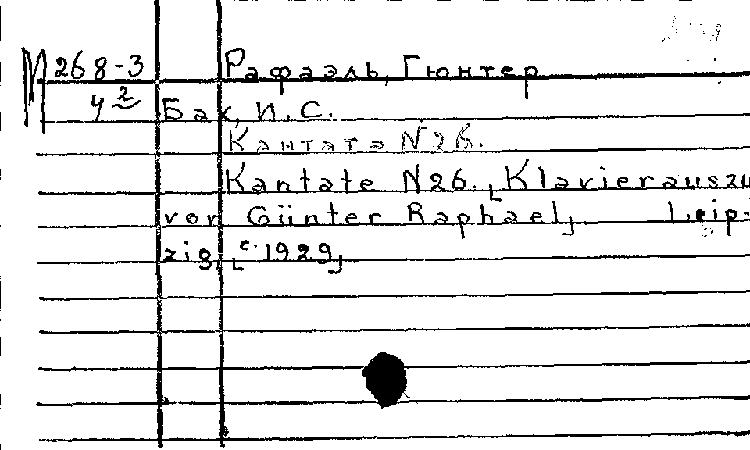 М 268-3 Рафаэль, Гюнтер
4² Бах, И. С.
Кантата N 26.
Kantate N26. [Klavierauszu
von Günter Raphael] Leip-
zig, [c. 1929]